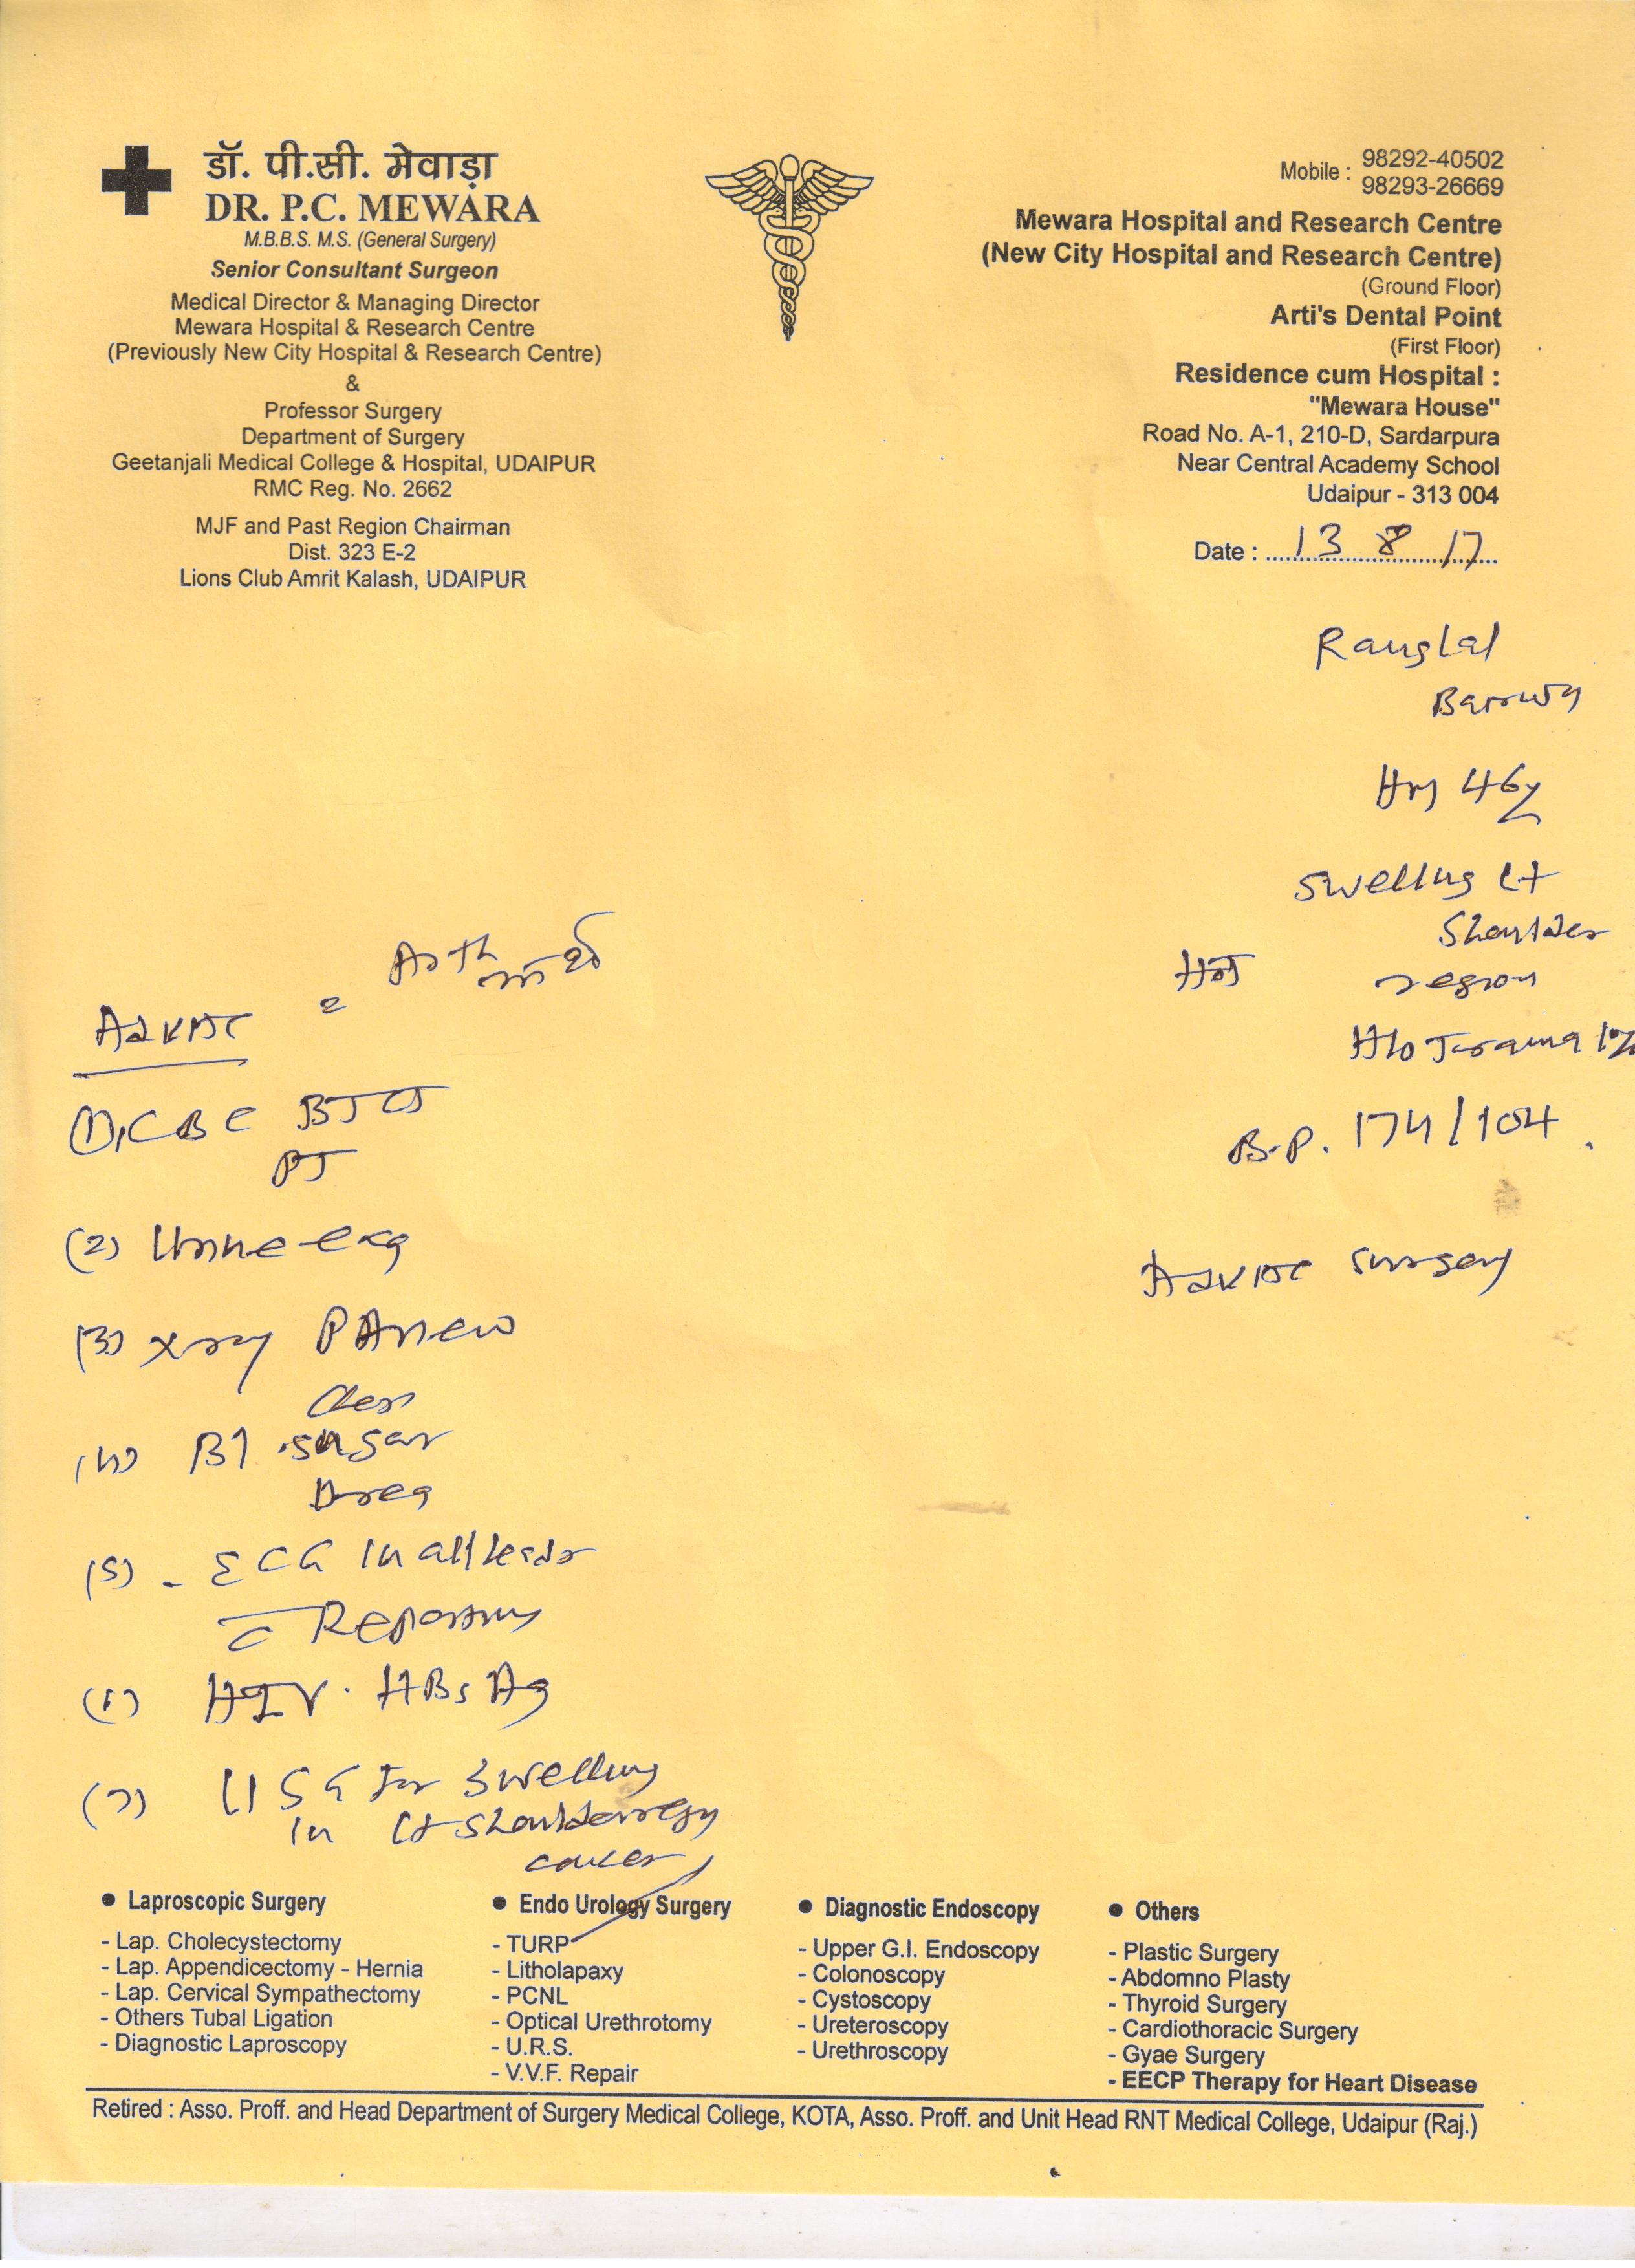 डॉ. पी.सी. मेवाड़ा
DR. P.C. MEWARA
M.B.B.S. M.S. (General Surgery)
Senior Consultant Surgeon
Medical Director & Managing Director
Mewara Hospital & Research Centre
(Previously New City Hospital & Research Centre)
&
Professor Surgery
Department of Surgery
Geetanjali Medical College & Hospital, UDAIPUR
RMC Reg. No. 2662
MJF and Past Region Chairman
Dist. 323 E-2
Lions Club Amrit Kalash, UDAIPUR
Mobile : 98292-40502
98293-26669
Mewara Hospital and Research Centre
(New City Hospital and Research Centre)
(Ground Floor)
Arti's Dental Point
(First Floor)
Residence cum Hospital :
"Mewara House"
Road No. A-1, 210-D, Sardarpura
Near Central Academy School
Udaipur - 313 004
Date : 13 8 17
Ranglal
Hm 46y
Swelling Lt
Shoulder
region
H/o Trauma
B.P. 174/104
Advise surgery
Advise
(1) CBC BT CT
PT
(2) Urine exa
(3) xray PA view
Chest
(4) Bl. sugar
Urea
(5) - ECG in all leads
c Reporting
HIV. HBsAg
(7) USG for swelling
in Lt shoulder region
● Laproscopic Surgery
- Lap. Cholecystectomy
- Lap. Appendicectomy - Hernia
- Lap. Cervical Sympathectomy
- Others Tubal Ligation
- Diagnostic Laproscopy
● Endo Urology Surgery
- TURP
- Litholapaxy
- PCNL
- Optical Urethrotomy
- U.R.S.
- V.V.F. Repair
● Diagnostic Endoscopy
- Upper G.I. Endoscopy
- Colonoscopy
- Cystoscopy
- Ureteroscopy
- Urethroscopy
● Others
- Plastic Surgery
- Abdomno Plasty
- Thyroid Surgery
- Cardiothoracic Surgery
- Gyae Surgery
- EECP Therapy for Heart Disease
Retired : Asso. Proff. and Head Department of Surgery Medical College, KOTA, Asso. Proff. and Unit Head RNT Medical College, Udaipur (Raj.)